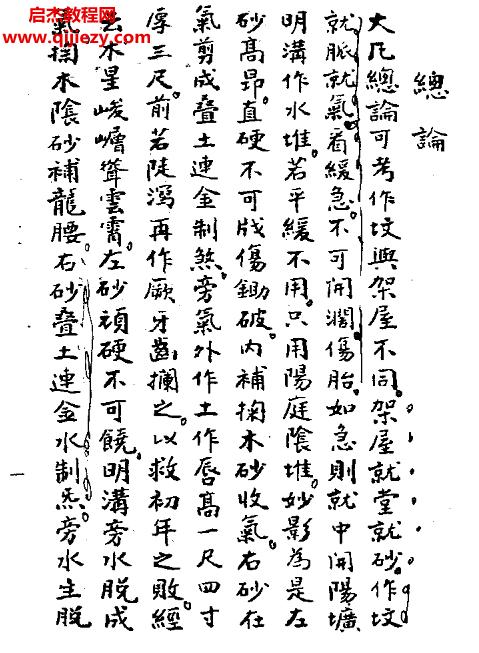 启杰教程网
www.qijiezy.com
總論
大凡總論可考作坟與架屋不同。架屋就堂就砂。作坟
就脈就氣。看緩急。不可開濶傷胎。如急則就中開陽壙
明溝作水堆。若平緩不用。只用陽庭陰堆。妙影為是左
砂高昂。直硬不可戕傷鋤破。内補掬木砂收氣。右砂在
氣剪成叠土連金制煞。旁氣外作土作唇高一尺四寸
厚三尺。前若陡瀉再作厥牙齒攔之。以救初年之敗。經
云木星峻嶒聳雲霄。左砂頑硬不可饒。明溝旁水脱成
氣掬木陰砂補龍腰。右砂叠土連金水制炁。旁水生脱